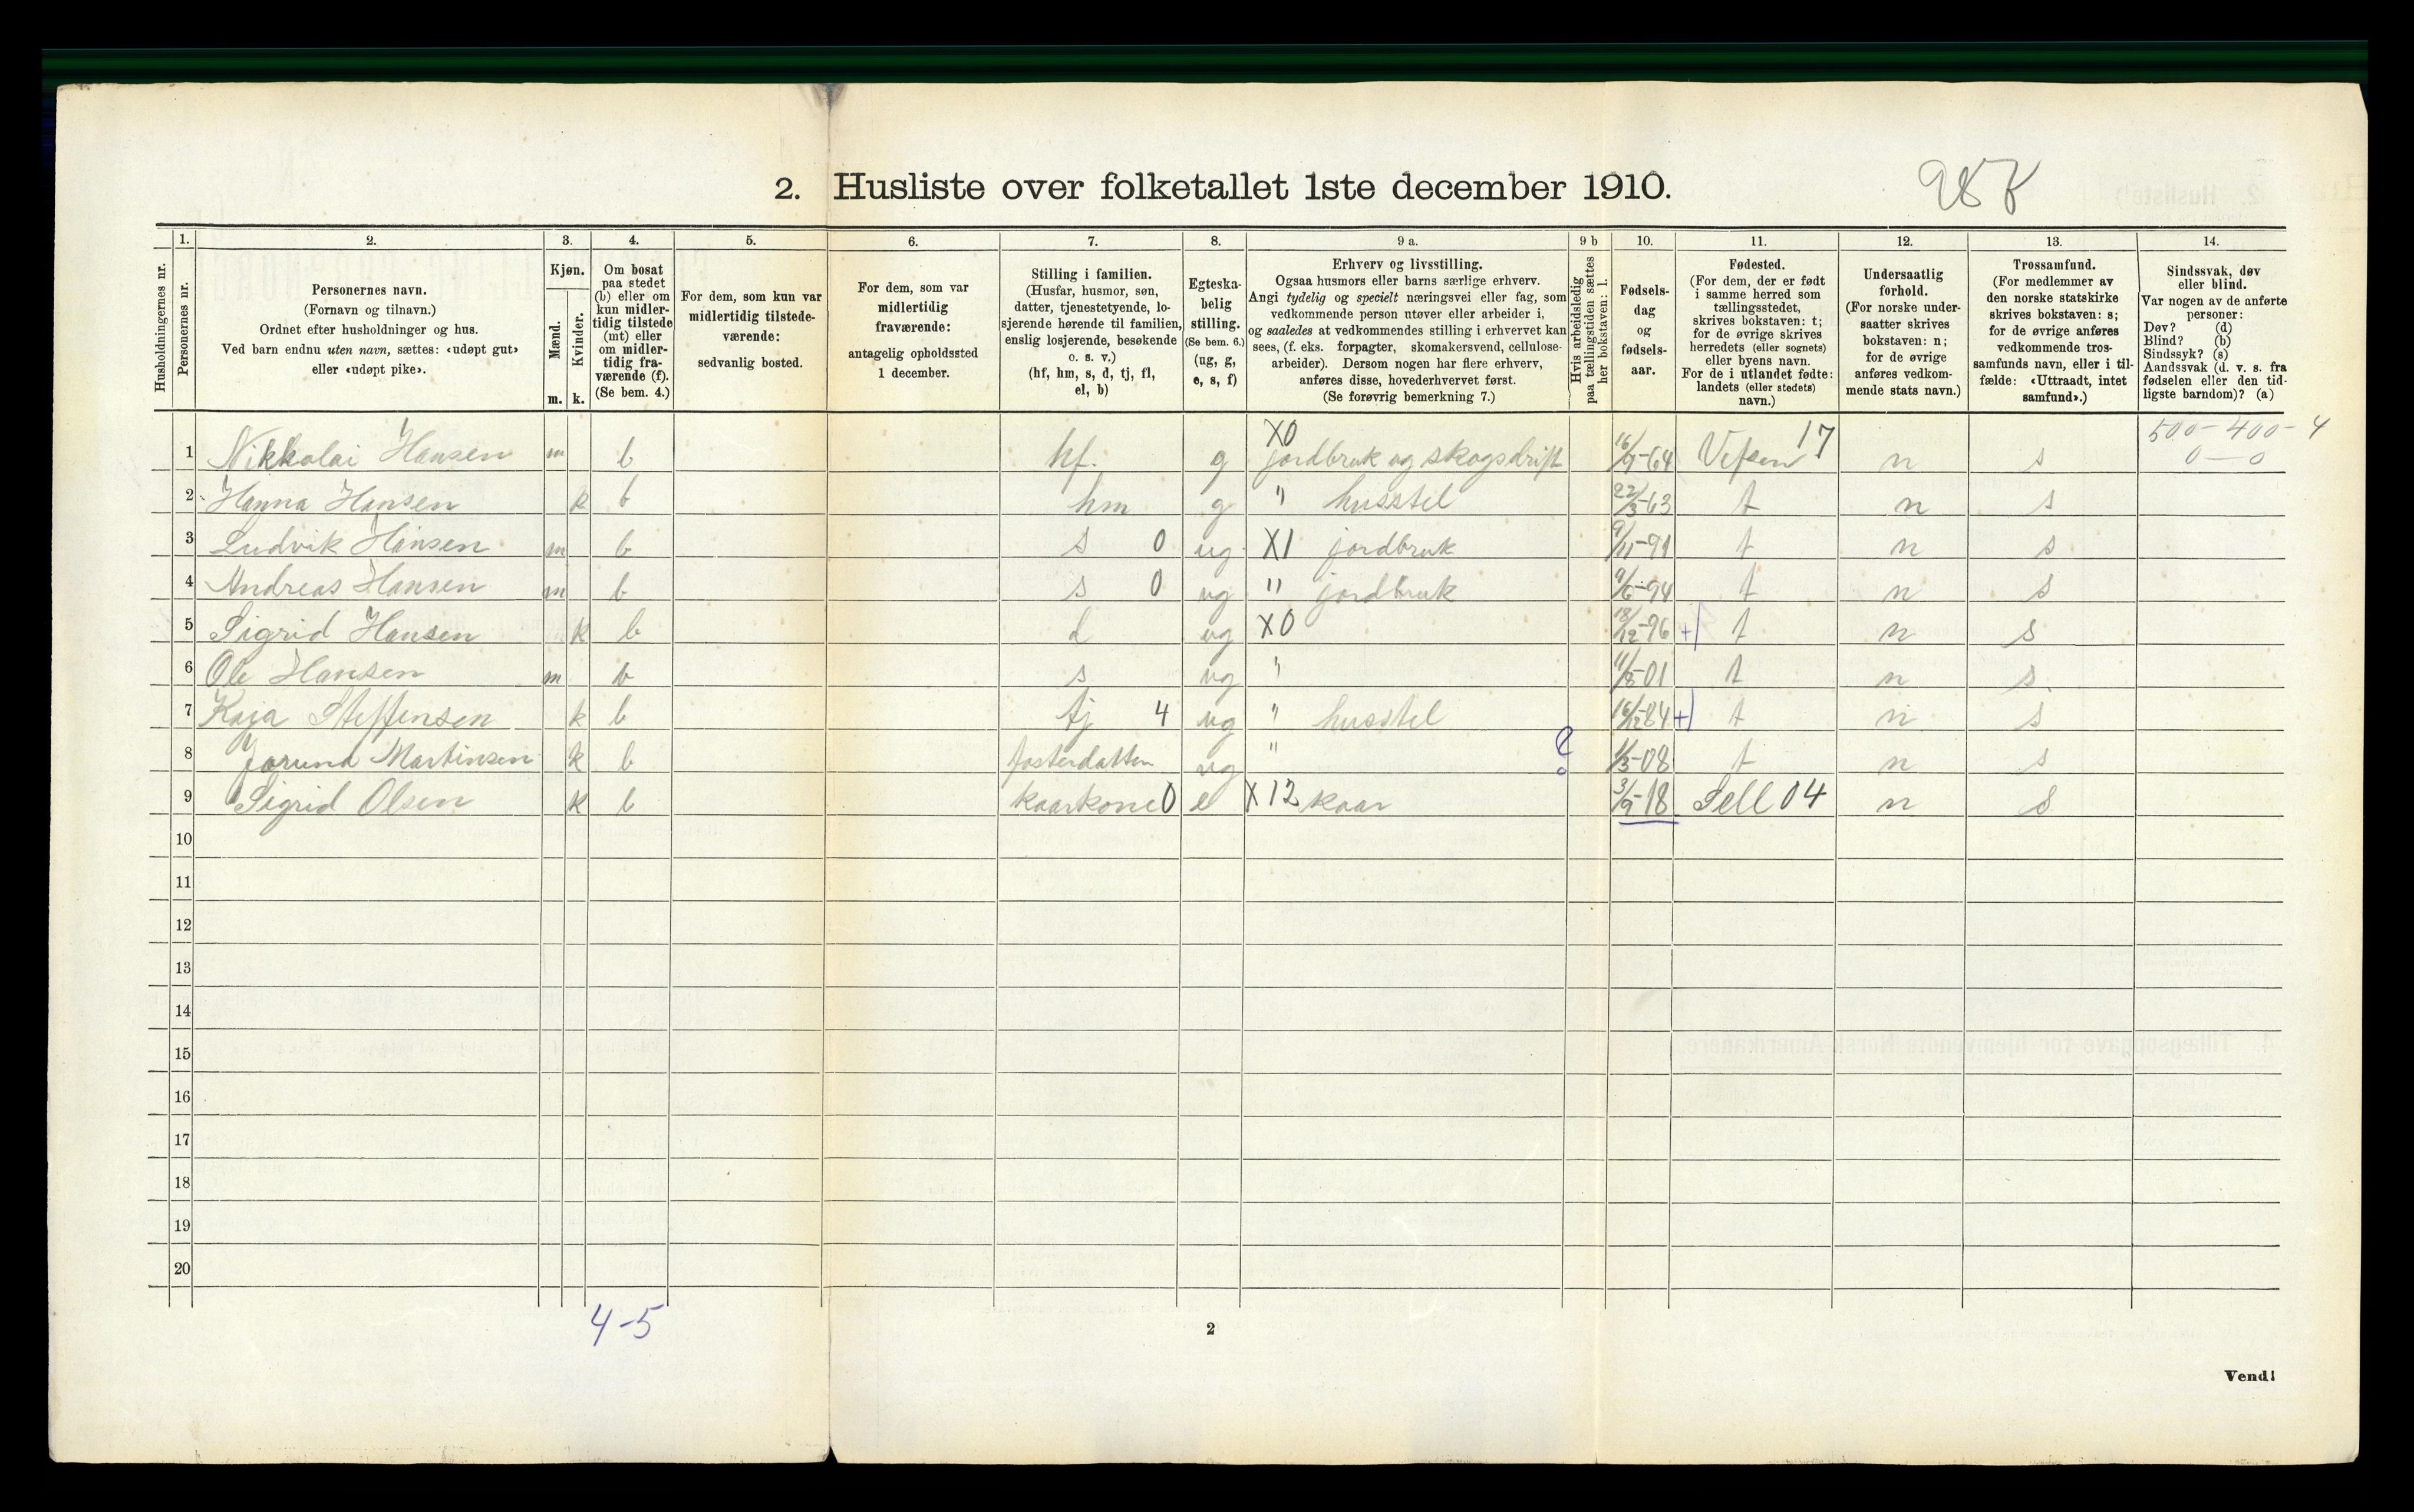 2. Husliste over folketallet 1ste december 1910.
Husholdningernes nr.
1.
Personernes nr.
2.
Personernes navn.
(Fornavn og tilnavn.)
Ordnet efter husholdninger og hus.
Ved barn endnu uten navn, sættes: «udøpt gut»
eller «udøpt pike».
3.
Kjøn.
Mænd.
Kvinder.
m. k.
4.
Om bosat
paa stedet
(b) eller om
kun midler-
tidig tilstede
(mt) eller
om midler-
tidig fra-
værende (f).
(Se bem. 4.)
5.
For dem, som kun var
midlertidig tilstede-
værende:
sedvanlig bosted.
6.
For dem, som var
midlertidig
fraværende:
antagelig opholdssted
1 december.
7.
Stilling i familien.
(Husfar, husmor, søn,
datter, tjenestetyende, lo-
sjerende hørende til familien,
enslig losjerende, besøkende
o. s. v.)
(hf, hm, s, d, tj, fl,
el, b)
8.
Egteska-
belig
stilling.
(Se bem. 6.)
(ug, g,
e, s, f)
9 a.
Erhverv og livsstilling.
Ogsaa husmors eller barns særlige erhverv.
Angi tydelig og specielt næringsvei eller fag, som
vedkommende person utøver eller arbeider i,
og saaledes at vedkommendes stilling i erhvervet kan
sees, (f. eks. forpagter, skomakersvend, cellulose-
arbeider). Dersom nogen har flere erhverv,
anføres disse, hovederhvervet først.
(Se forøvrig bemerkning 7.)
9 b
Hvis arbeidsledig
paa tællingstiden sættes
her bokstaven: l.
10.
Fødsels-
dag
og
fødsels-
aar.
11.
Fødested.
(For dem, der er født
i samme herred som
tællingsstedet,
skrives bokstaven: t;
for de øvrige skrives
herredets (eller sognets)
eller byens navn.
For de i utlandet fødte:
landets (eller stedets)
navn.)
12.
Undersaatlig
forhold.
(For norske under-
saatter skrives
bokstaven: n;
for de øvrige
anføres vedkom-
mende stats navn.)
13.
Trossamfund.
(For medlemmer av
den norske statskirke
skrives bokstaven: s;
for de øvrige anføres
vedkommende tros-
samfunds navn, eller i til-
fælde: «Uttraadt, intet
samfund».)
14.
Sindssvak, døv
eller blind.
Var nogen av de anførte
personer:
Døv? (d)
Blind? (b)
Sindssyk? (s)
Aandssvak (d. v. s. fra
fødselen eller den tid-
ligste barndom)? (a)
1 Nikkolai Hansen m b hf. g X0 jordbruk og skogsdrift 16/9-64 Vefsen 17 n s 500-400-4 0-0
2 Hanna Hansen k b hm g " husstel 22/3-63 t n s
3 Ludvik Hansen m b s 0 ug X1 jordbruk 9/11-91 t n s
4 Andreas Hansen m b s 0 ug " jordbruk 9/6-94 t n s
5 Sigrid Hansen k b d ug X0 18/12-96 + t n s
6 Ole Hansen m b s ug " 11/8-01 t n s.
7 Kaja Steffensen k b tj 4 ug " husstel 16/12-84 + t n s
8 Jorund Martinsen k b fosterdatter ug " 1/5-08 t n s
9 Sigrid Olsen k b kaarkone 0 e X12 kaar 3/9-18 Sell 04 n s
10
11
12
13
14
15
16
17
18
19
20
4-5
2
Vend!